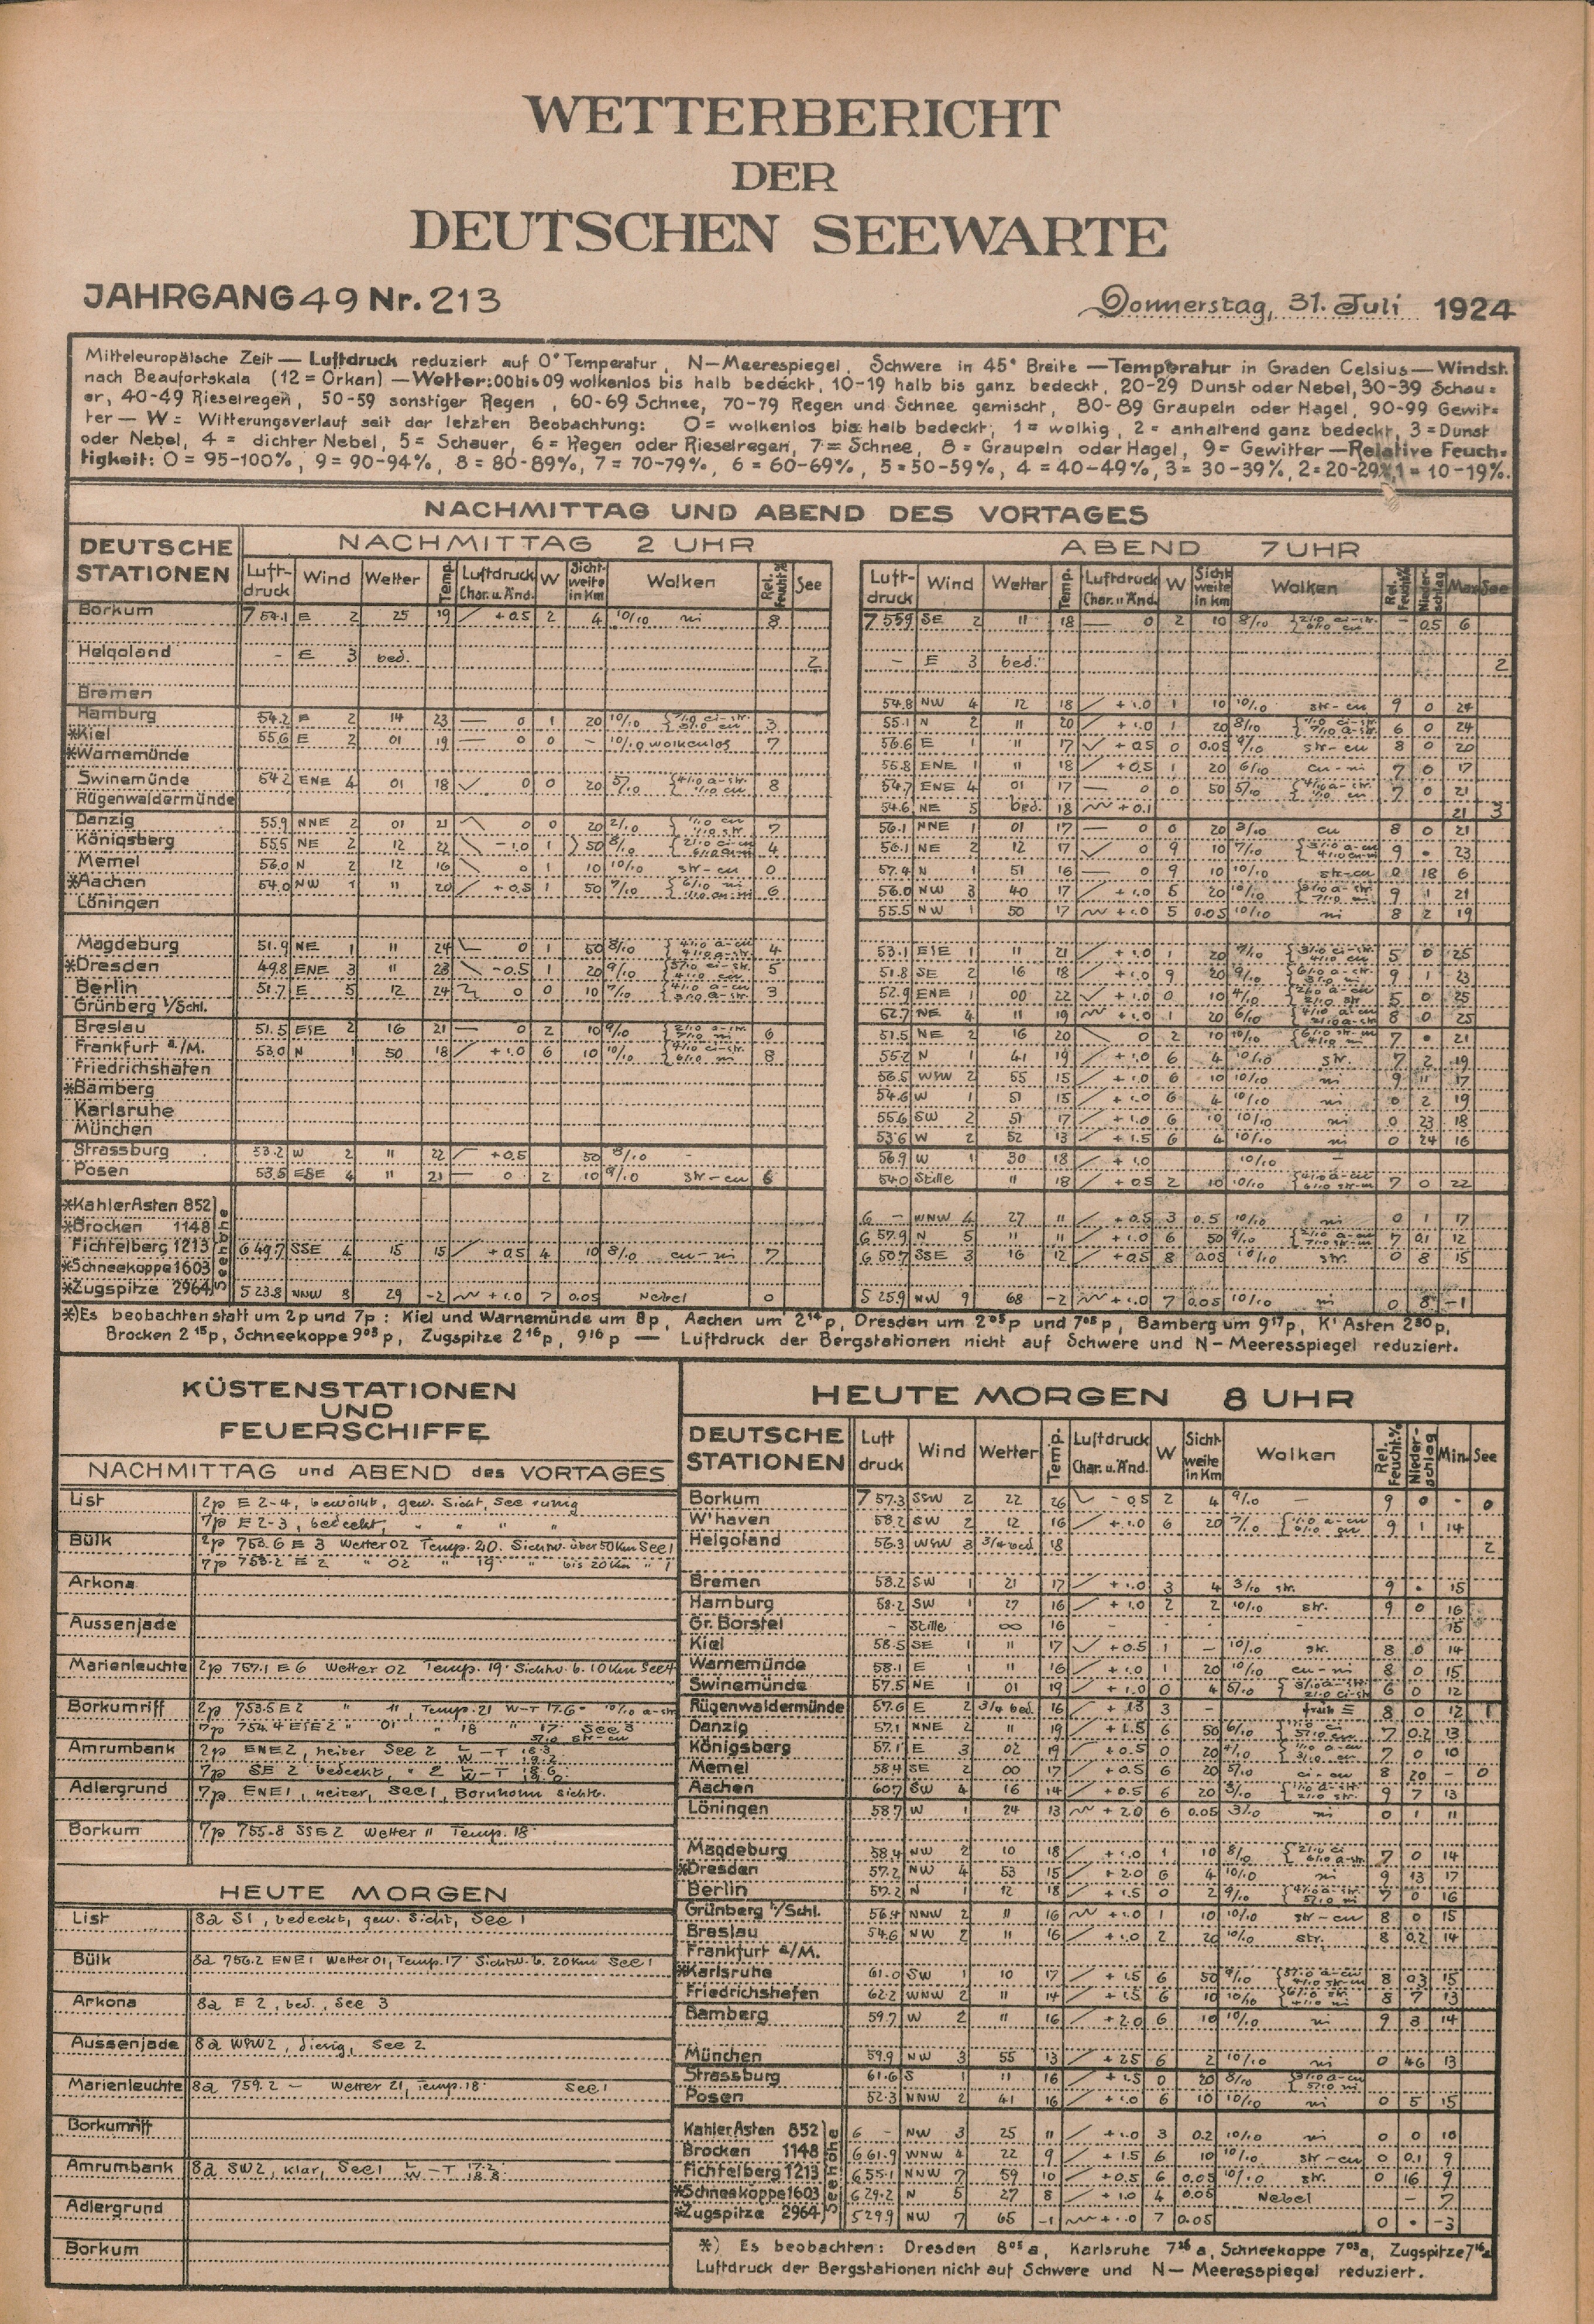 WETTERBERICHT
DER
DEUTSCHEN SEEWARTE
JAHRGANG 49 Nr. 213
Donnerstag, 31. Juli 1924
Mitteleuropäische Zeit — Luftdruck reduziert auf 0° Temperatur, N—Meerespiegel, Schwere in 45° Breite — Temperatur in Graden Celsius — Windst.
nach Beaufortskala (12 = Orkan) — Wetter: 00 bis 09 wolkenlos bis halb bedeckt, 10-19 halb bis ganz bedeckt, 20-29 Dunst oder Nebel, 30-39 Schau=
er, 40-49 Rieselregen, 50-59 sonstiger Regen, 60-69 Schnee, 70-79 Regen und Schnee gemischt, 80-89 Graupeln oder Hagel, 90-99 Gewit=
ter — W = Witterungsverlauf seit der letzten Beobachtung: 0 = wolkenlos bis halb bedeckt, 1 = wolkig, 2 = anhaltend ganz bedeckt, 3 = Dunst
oder Nebel, 4 = dichter Nebel, 5 = Schauer, 6 = Regen oder Rieselregen, 7 = Schnee, 8 = Graupeln oder Hagel, 9 = Gewitter — Relative Feuch=
tigkeit: 0 = 95-100%, 9 = 90-94%, 8 = 80-89%, 7 = 70-79%, 6 = 60-69%, 5 = 50-59%, 4 = 40-49%, 3 = 30-39%, 2 = 20-29%, 1 = 10-19%.
NACHMITTAG UND ABEND DES VORTAGES
DEUTSCHE STATIONEN
NACHMITTAG 2 UHR
Luftdruck Wind Wetter Temp. Luftdruck Char. u. Änd. W Sichtweite in Km Wolken Rel. Feucht.% See
ABEND 7 UHR
Luftdruck Wind Wetter Temp. Luftdruck Char. u. Änd. W Sichtweite in km Wolken Rel. Feucht.% Niederschlag Max See
Borkum 754.1 E 2 25 19 +0.5 2 4 10/10 ni 8 755.9 SE 2 11 18 0 2 10 8/10 – 0.5 6
Helgoland – E 3 bed. 2 – E 3 bed. 2
Bremen 54.8 NW 4 12 18 +1.0 1 10 10/10 str-cu 9 0 24
Hamburg 54.2 E 2 14 23 0 1 20 10/10 3 55.1 N 2 11 20 +1.0 1 20 8/10 6 0 24
*Kiel 55.6 E 2 01 19 0 0 – 10/10 wolkenlos 7 56.6 E 1 11 17 +0.5 0 0.05 9/10 str-cu 8 0 20
*Warnemünde 55.8 ENE 1 11 18 +0.5 1 20 6/10 cu-ni 7 0 17
Swinemünde 54.2 ENE 4 01 18 0 0 20 5/10 8 54.7 ENE 4 01 17 0 0 50 5/10 7 0 21
Rügenwaldermünde 54.6 NE 5 bed. 18 +0.1 21 3
Danzig 55.9 NNE 2 01 21 0 0 20 2/10 7 56.1 NNE 1 01 17 0 0 20 3/10 cu 8 0 21
Königsberg 55.5 NE 2 12 22 -1.0 1 50 8/10 4 56.1 NE 2 12 17 0 9 10 7/10 9 • 23
Memel 56.0 N 2 12 16 0 1 10 10/10 str-cu 0 57.4 N 1 51 16 0 9 10 10/10 str-cu 0 18 6
*Aachen 54.0 NW 1 11 20 +0.5 1 50 7/10 6 56.0 NW 3 40 17 +1.0 5 20 10/10 9 1 21
Löningen 55.5 NW 1 50 17 +1.0 5 0.05 10/10 ni 8 2 19
Magdeburg 51.9 NE 1 11 24 0 1 50 8/10 4 53.1 ESE 1 11 21 +1.0 1 20 7/10 5 0 25
*Dresden 49.8 ENE 3 11 23 -0.5 1 20 9/10 5 51.8 SE 2 16 18 +1.0 9 20 9/10 9 1 23
Berlin 51.7 E 5 12 24 0 0 10 7/10 3 52.9 ENE 1 00 22 +1.0 0 10 4/10 5 0 25
Grünberg i/Schl. 52.7 NE 4 11 19 +1.0 1 20 6/10 8 0 25
Breslau 51.5 ESE 2 16 21 0 2 10 9/10 6 51.5 NE 2 16 20 0 2 10 10/10 7 • 21
Frankfurt a/M. 53.0 N 1 50 18 +1.0 6 10 10/10 8 55.2 N 1 41 19 +1.0 6 4 10/10 str. 7 2 19
Friedrichshafen 56.5 WSW 2 55 15 +1.0 6 10 10/10 ni 9 11 17
*Bamberg 54.6 W 1 51 15 +1.0 6 4 10/10 ni 0 2 19
Karlsruhe 55.6 SW 2 51 17 +1.0 6 10 10/10 ni 0 23 18
München 53.6 W 2 52 13 +1.5 6 4 10/10 ni 0 24 16
Strassburg 53.2 W 2 11 22 +0.5 50 8/10 – 56.9 W 1 30 18 +1.0 10/10 –
Posen 53.5 ESE 4 11 21 0 2 10 9/10 str-cu 6 54.0 Stille 11 18 +0.5 2 10 10/10 7 0 22
Seehöhe
*Kahler Asten 852 6 – WNW 4 27 11 +0.5 3 0.5 10/10 ni 0 1 17
*Brocken 1148 6 57.9 N 5 11 11 +1.0 6 50 9/10 7 0.1 12
Fichtelberg 1213 6 49.7 SSE 4 15 15 +0.5 4 10 8/10 cu-ni 7 6 50.7 SSE 3 16 12 +0.5 8 0.05 10/10 str. 0 8 15
*Schneekoppe 1603
*Zugspitze 2964 5 23.8 NNW 8 29 -2 +1.0 7 0.05 Nebel 0 5 25.9 NW 9 68 -2 +1.0 7 0.05 10/10 ni 0 8 -1
*) Es beobachten statt um 2p und 7p: Kiel und Warnemünde um 8p, Aachen um 2¹⁴p, Dresden um 2⁰⁵p und 7⁰⁵p, Bamberg um 9¹⁷p, K' Asten 2³⁰p,
Brocken 2¹⁵p, Schneekoppe 9⁰³p, Zugspitze 2¹⁶p, 9¹⁶p — Luftdruck der Bergstationen nicht auf Schwere und N—Meeresspiegel reduziert.
KÜSTENSTATIONEN
UND
FEUERSCHIFFE
NACHMITTAG und ABEND des VORTAGES
List 2p E 2-4, bewölkt, gew. Sicht, See ruhig
7p E 2-3, bedeckt, " " " "
Bülk 2p 753.6 E 3 Wetter 02 Temp. 20. Sichtw. über 50 Km See 1
7p 755.2 E 2 " 02 " 19 " bis 20 Km " 1
Arkona
Aussenjade
Marienleuchte 2p 757.1 E 6 Wetter 02 Temp. 19 Sichtw. b. 10 Km See 4
Borkumriff 2p 753.5 E 2 " 11, Temp. 21 W-T 17.6 10/10 a-str
7p 754.4 ESE 2 " 01 " 18 " 17 See 3
Amrumbank 2p ENE 2, heiter See 2
7p SE 2 bedeckt, " 2
Adlergrund 7p ENE 1, heiter, See 1, Bornholm sichtb.
Borkum 7p 755.8 SSE 2 Wetter 11 Temp. 18
HEUTE MORGEN
List 8a S 1, bedeckt, gew. Sicht, See 1
Bülk 8a 756.2 ENE 1 Wetter 01, Temp. 17 Sichtw. b. 20 Km See 1
Arkona 8a E 2, bed., See 3
Aussenjade 8a WSW 2, diesig, See 2
Marienleuchte 8a 759.2 – Wetter 21, Temp. 18 See 1
Borkumriff
Amrumbank 8a SW 2, klar, See 1 L W – T 17.2 18.8
Adlergrund
Borkum
HEUTE MORGEN 8 UHR
DEUTSCHE STATIONEN Luftdruck Wind Wetter Temp. Luftdruck Char. u. Änd. W Sichtweite in Km Wolken Rel. Feucht.% Niederschlag Min. See
Borkum 757.3 SSW 2 22 26 -0.5 2 4 9/10 – 9 0 - 0
W'haven 58.2 SW 2 12 16 +1.0 6 20 7/10 9 1 14
Helgoland 56.3 WSW 3 3/4 bed 18 2
Bremen 58.2 SW 1 21 17 +1.0 3 4 3/10 str. 9 • 15
Hamburg 58.2 SW 1 27 16 +1.0 2 2 10/10 str. 9 0 16
Gr. Borstel – Stille ∞ 16 - - - - 15
Kiel 58.5 SE 1 11 17 +0.5 1 – 10/10 str. 8 0 14
Warnemünde 58.1 E 1 11 16 +1.0 1 20 10/10 cu-ni 8 0 15
Swinemünde 57.5 NE 1 01 19 +1.0 0 4 5/10 6 0 12
Rügenwaldermünde 57.6 E 2 3/4 bed. 16 + 1.3 3 – früh ≡ 8 0 12 1
Danzig 57.1 NNE 2 11 19 +1.5 6 50 6/10 7 0.2 13
Königsberg 57.1 E 3 02 19 +0.5 0 20 4/10 7 0 10
Memel 58.4 SE 2 00 17 +0.5 6 20 5/10 ci-cu 8 20 – 0
Aachen 60.7 SW 4 16 14 +0.5 6 20 3/10 9 7 13
Löningen 58.7 W 1 24 13 +2.0 6 0.05 3/10 ni 0 1 11
Magdeburg 58.4 NW 2 10 18 +1.0 1 10 8/10 7 0 14
*Dresden 57.2 NW 4 53 15 +2.0 6 4 10/10 ni 9 13 17
Berlin 57.2 N 1 12 18 +1.5 0 2 9/10 7 0 16
Grünberg i/Schl. 56.4 NNW 2 11 16 +1.0 1 10 10/10 str-cu 8 0 15
Breslau 54.6 NW 2 11 16 +1.0 2 20 10/10 str. 8 0.2 14
Frankfurt a/M.
*Karlsruhe 61.0 SW 1 10 17 +1.5 6 50 9/10 8 0.3 15
Friedrichshafen 62.2 WNW 2 11 14 +1.5 6 10 10/10 8 7 13
Bamberg 59.7 W 2 11 16 +2.0 6 10 10/10 ni 9 3 14
München 59.9 NW 3 55 13 +2.5 6 2 10/10 ni 0 46 13
Strassburg 61.6 S 1 11 16 +1.5 0 20 8/10
Posen 52.3 NNW 2 41 16 +1.0 6 10 10/10 ni 0 5 15
Seehöhe
Kahler Asten 852 6 – NW 3 25 11 +1.0 3 0.2 10/10 ni 0 0 10
Brocken 1148 6 61.9 WNW 4 22 9 +1.5 6 10 10/10 str-cu 0 0.1 9
Fichtelberg 1213 6 55.1 NNW 7 59 10 +0.5 6 0.05 10/10 str. 0 16 9
*Schneekoppe 1603 6 29.2 N 5 27 8 +1.0 4 0.05 Nebel – 7
*Zugspitze 2964 5 29.9 NW 7 65 -1 +1.0 7 0.05 0 • -3
*) Es beobachten: Dresden 8⁰⁵a, Karlsruhe 7²⁶a, Schneekoppe 7⁰³a, Zugspitze 7¹⁶a
Luftdruck der Bergstationen nicht auf Schwere und N—Meeresspiegel reduziert.